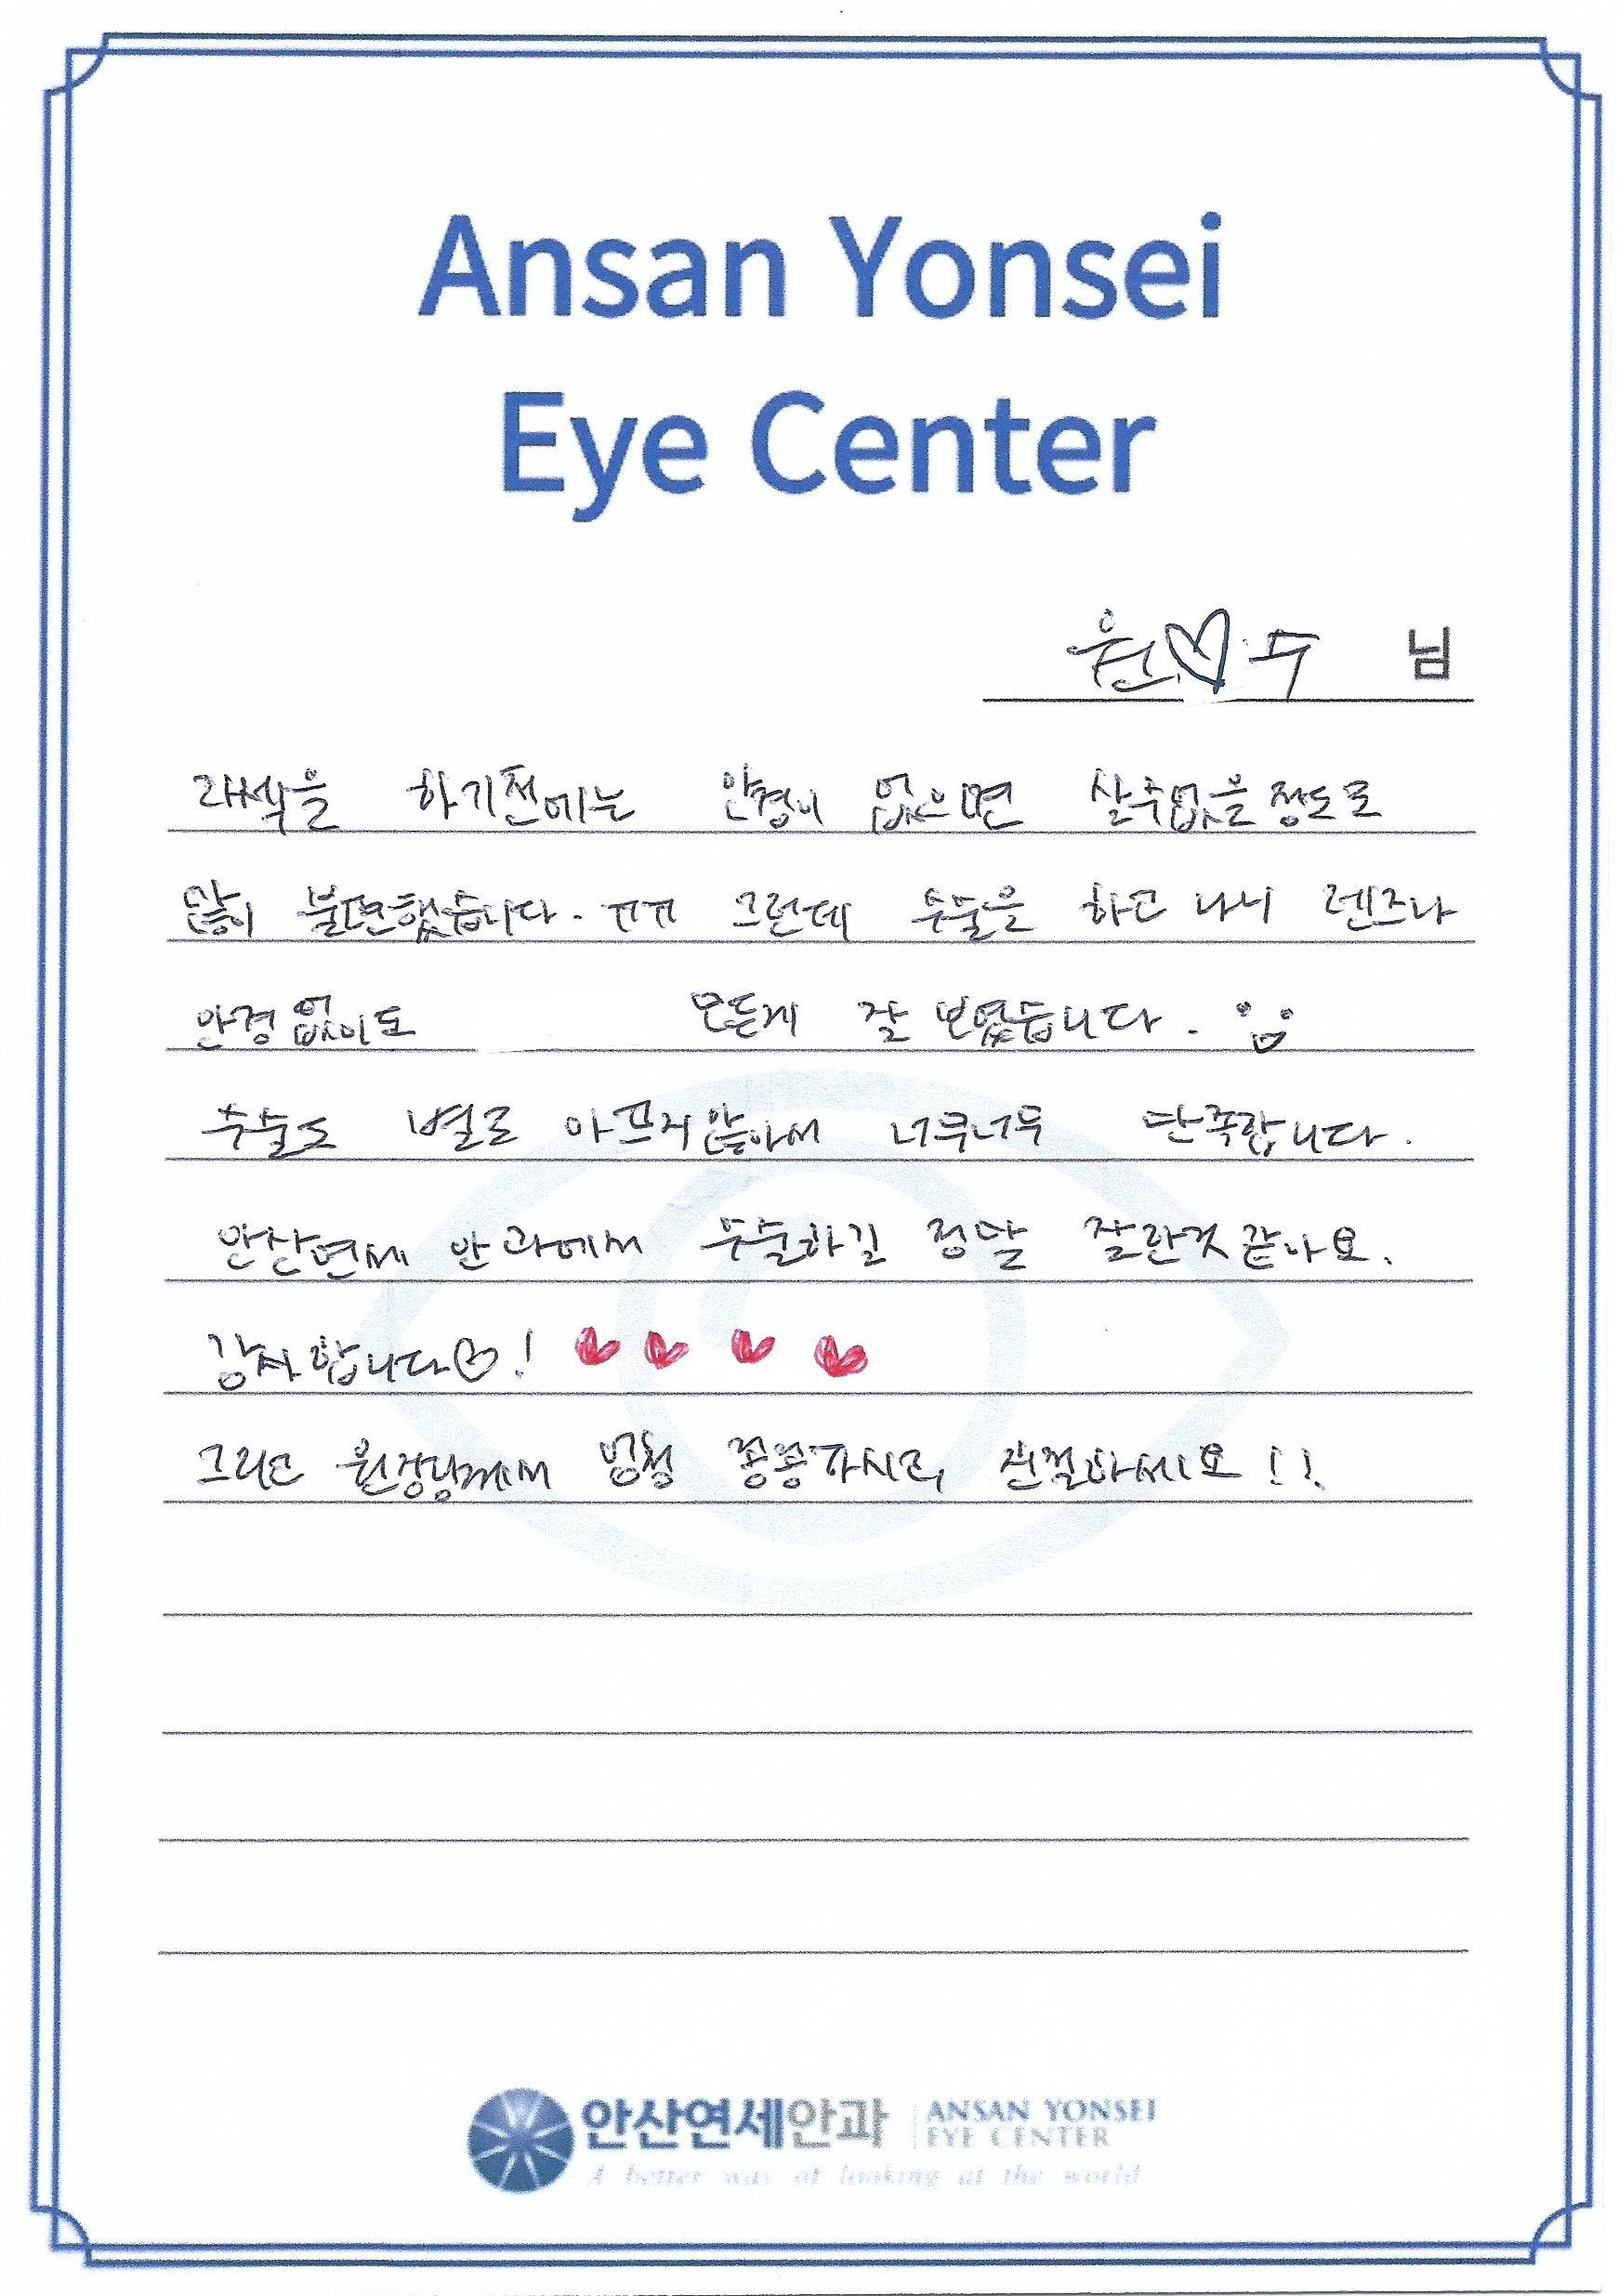 Ansan Yonsei
Eye Center
원♡수 님
라섹을 하기전에는 안경이 없으면 살수없을정도로
많이 불편했습니다. ㅠㅠ 그런데 수술을 하고 나니 렌즈나
안경없이도 모든게 잘 보였습니다.
수술도 별로 아프지않아서 너무너무 만족합니다.
안산연세 안과에서 수술하길 정말 잘한것 같아요.
감사합니다♡!
그리고 원장님께서 엄청 꼼꼼하시고, 친절하세요!!
안산연세안과 ANSAN YONSEI
EYE CENTER
A better way of looking at the world